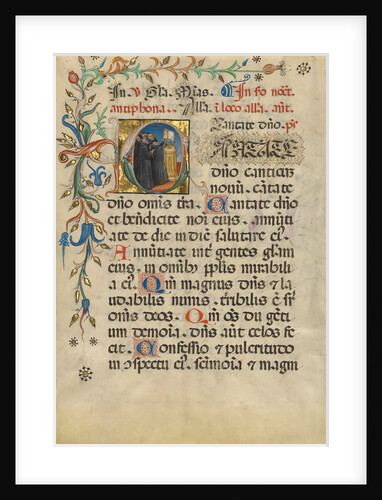 In ỹ Gla. Mias. In fo noct.
antiphona. Alla. i loco alla. ant.
Cantate dño. ps
CANTATE
dño canticũ
novũ. cãtate
dño omĩs tra. Cantate dño
et bendicite noĩ eius. annũti
ate de die in diẽ salutare eiꝰ.
Annũtiate int gentes gl̃am
eius. in omĩbꝰ pplis mirabili
a eiꝰ. Qm̃ magnus dñs ⁊ la
udabilis nimis. tr̃ibilis ẽ sr̃
omĩs deos. Qm̃ oẽs du gẽti
um demoĩa. dñs aũt celos fe
cit. Confessio ⁊ pulcritudo
in ɔspectu eiꝰ. sc̃imoĩa ⁊ magni